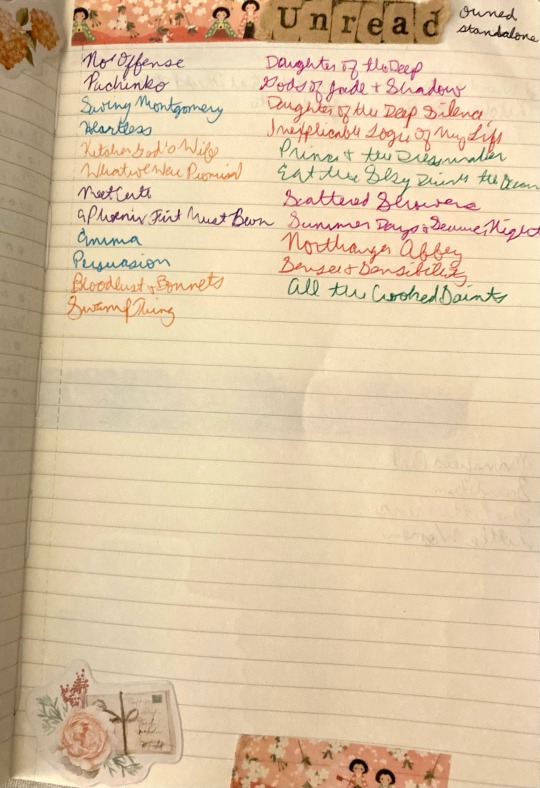 Unread
owned
standalone
No Offense
Pachinko
Saving Montgomery
Heartless
Kitchen God's Wife
What We Were Promised
Meet Cute
a Phoenix First Must Burn
Emma
Persuasion
Bloodlust & Bonnets
Swamp Thing
Daughter of the Deep
Gods of Jade & Shadow
Daughter of the Deep Silence
Inexplicable Logic of My Life
Prince & the Dressmaker
Eat the Sky Drink the Ocean
Scattered Showers
Summer Days & Summer Nights
Northanger Abbey
Sense & Sensibility
All the Crooked Saints